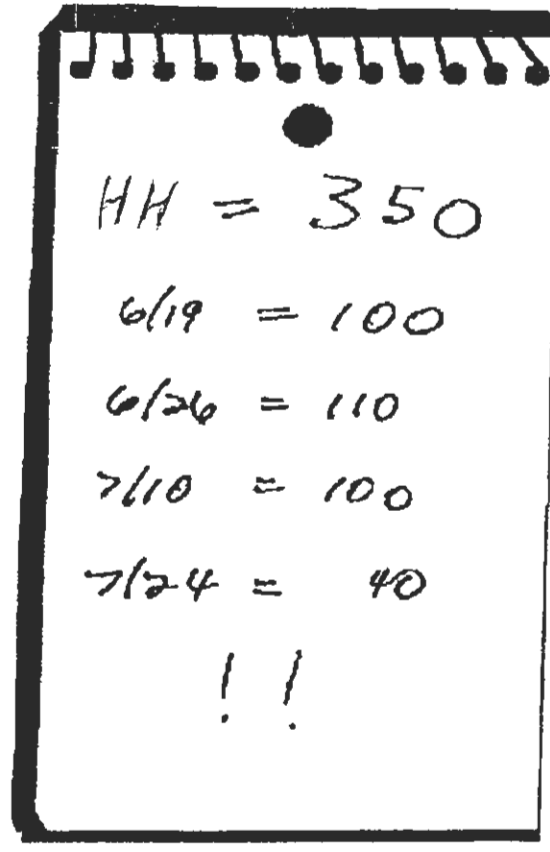 HH = 350
6/19 = 100
6/26 = 110
7/10 = 100
7/24 = 40
! !